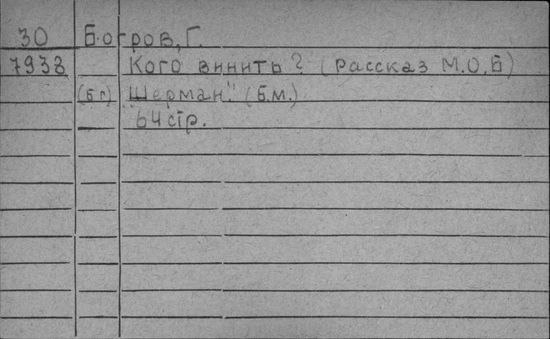 30 Богров, Г.
7938 Кого винить? (Рассказ М.О.Б)
(бг) "Шерман". (Б.м.)
64 стр.